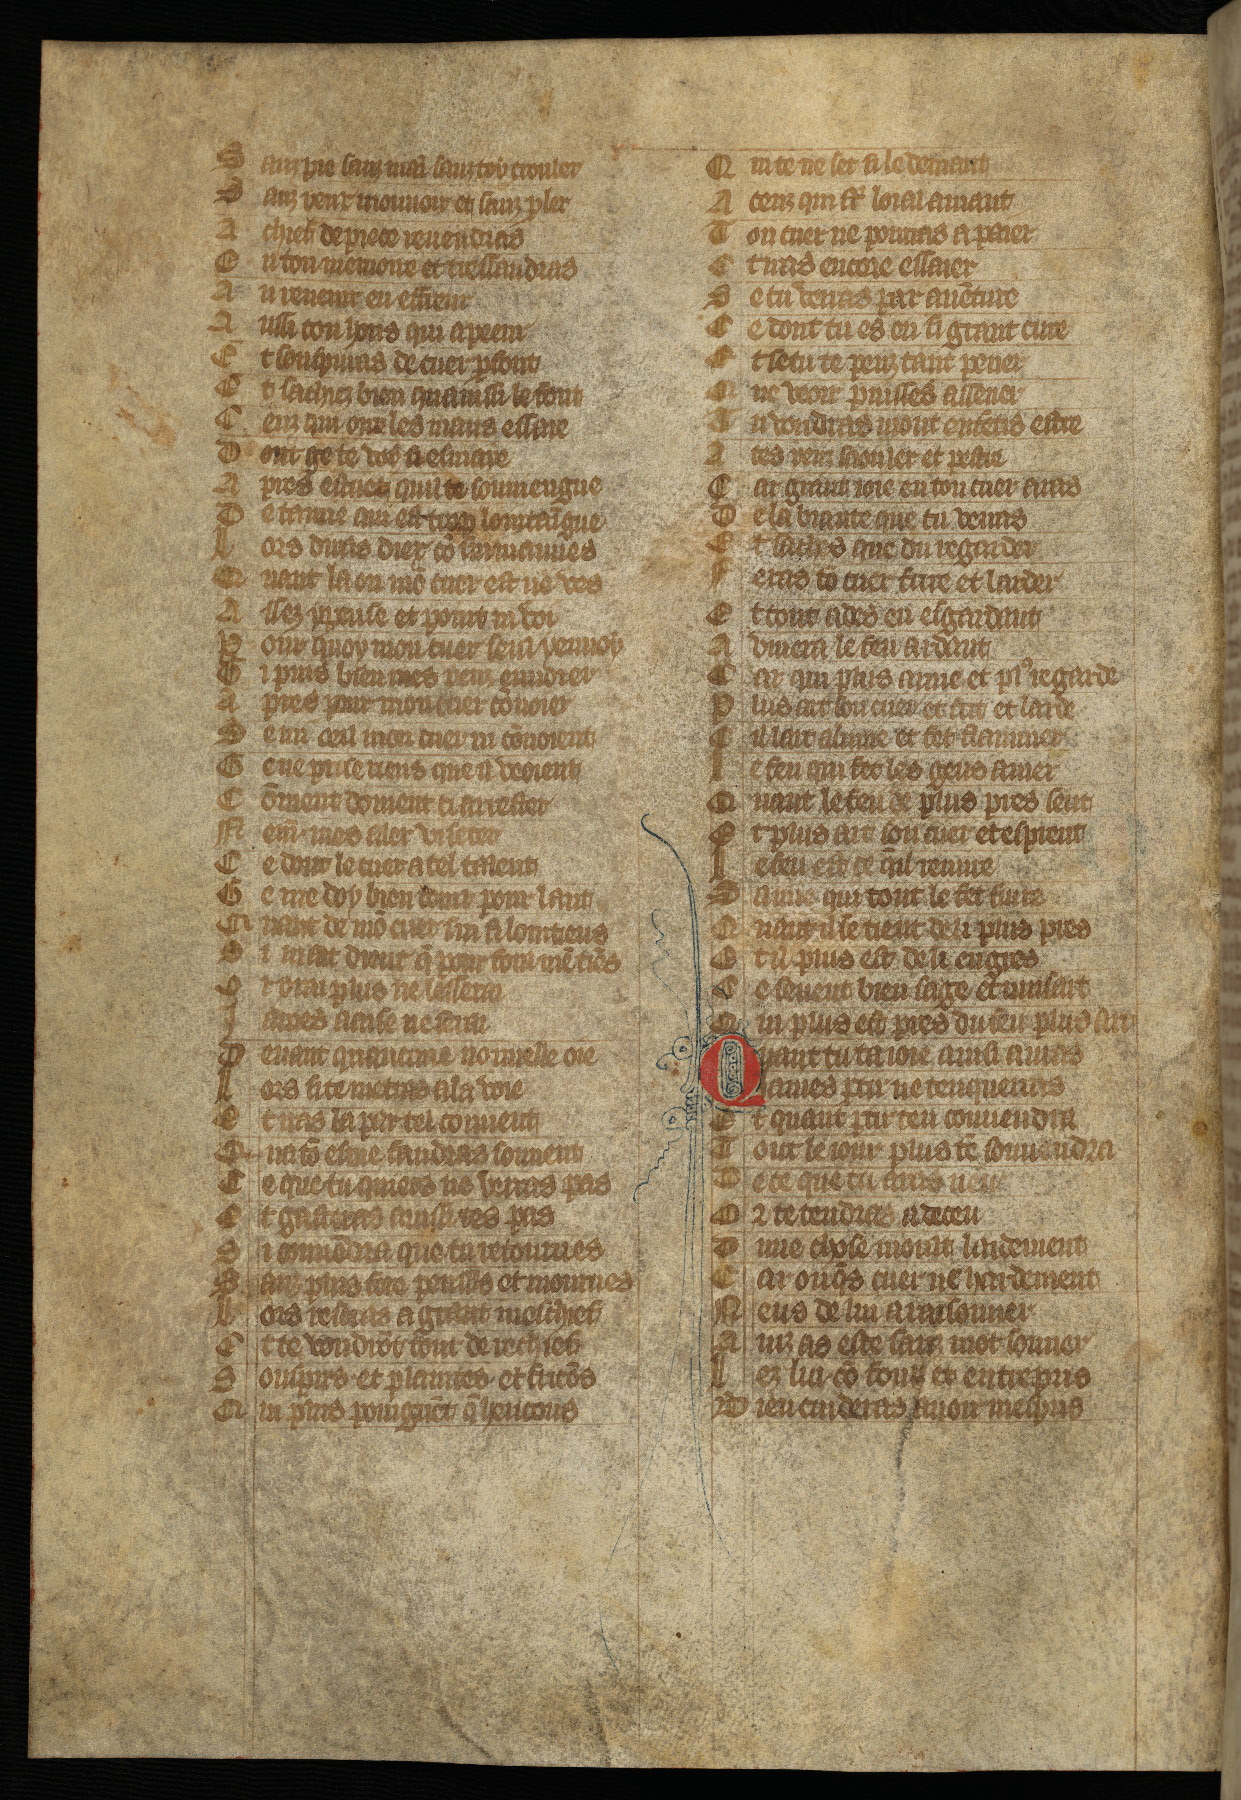 S anz pie sanz main sanz toy crouler
S anz yeux mouvoir et sanz pler
A chief de piece revendras
E n ton memoire et tressaudras
A u revenir en effreur
A ussi con hons qui a peeur
E t souspirras de cuer pfont
E t sachez bien quainssi le font
C eux qui ont les maus essaie
D ont ge te voi si esmaie
A pres est dreiz quil te souviengne
D e tamie qui est trop lointaigne
L ors diras diex cō sui mauves
Q uant la ou mō cuer est ne ves
A illez ypense et point ni voi
P our quoy mon cuer seul y envoy
G i puis bien mes yeux envoier
A pres pour mon cuer cōvoier
S e mi oeil mon cuer ni cōvoient
G e ne prise riens que il vooient
C ōment doivent ci arrester
N enil mes aler visiter
C e dont le cuer a tel talent
G e me doy bien tenir pour lant
Q uant de mō cuer sui si lointieus
S i mait dieux q̄ pour fox mē tiēs
O r yrai plus ne lesseroi
J ames aaise ne serai
D evant quaucune nouvelle oie
L ors si te metras a la voie
E t iras la par tel convent
Q ua tō esme faudras souvent
C e que tu quiers ne verras pas
E t gasteras ainssi tes pas
S i convēdra que tu retournes
S anz plus fere pensis et mournes
L ors reseras a grant meschief
E t te vendrōt tout de rechief
S ouspirs et plaintes et friēōs
Q ui plus poingnēt q̄ hericons
Q ui ce ne set si le demant
A ceuz qui st loial amant
T on cuer ne pourras apaier
E t iras encore essaier
S e tu verras par avēture
C e dont tu es en si grant cure
E t se tu te peuz tant pener
Q ue veoir puisses assener
T u voudras mout ententis estre
A tes yeux saouler et pestre
C ar grant ioie en ton cuer auras
D e la biaute que tu verras
E t saches que du regarder
F eras tō cuer frire et larder
E t tout ades en esgardant
A viverra le feu ardāt
C ar qui plus aime et pl9 regarde
P lus art son cuer et frit et larde
C il lart alume et fet flammer
L e feu qui fet les gens amer
Q uant le feu de plus pres sent
E t plus art son cuer et esprent
L e feu est ce quil remire
S amie qui tout le fet frire
Q uant il se tient de li plus pres
E t il plus est de li engres
C e sevent bien sage et musart
Q ui plus est pres du feu plus art
Q uant tu ta ioie ainsi auras
J ames ptir ne ten querras
E t quant ptir ten convendra
T out le iour plus tē souvendra
D e ce que tu auras veu
O r te tendras a deceu
D une chose moult laidement
C ar onq̄s cuer ne hardement
N eus de lui arraisonner
A inz as este sanz mot sonner
L ez lui cō fous et entrepris
B ien cuideras avoir mespris